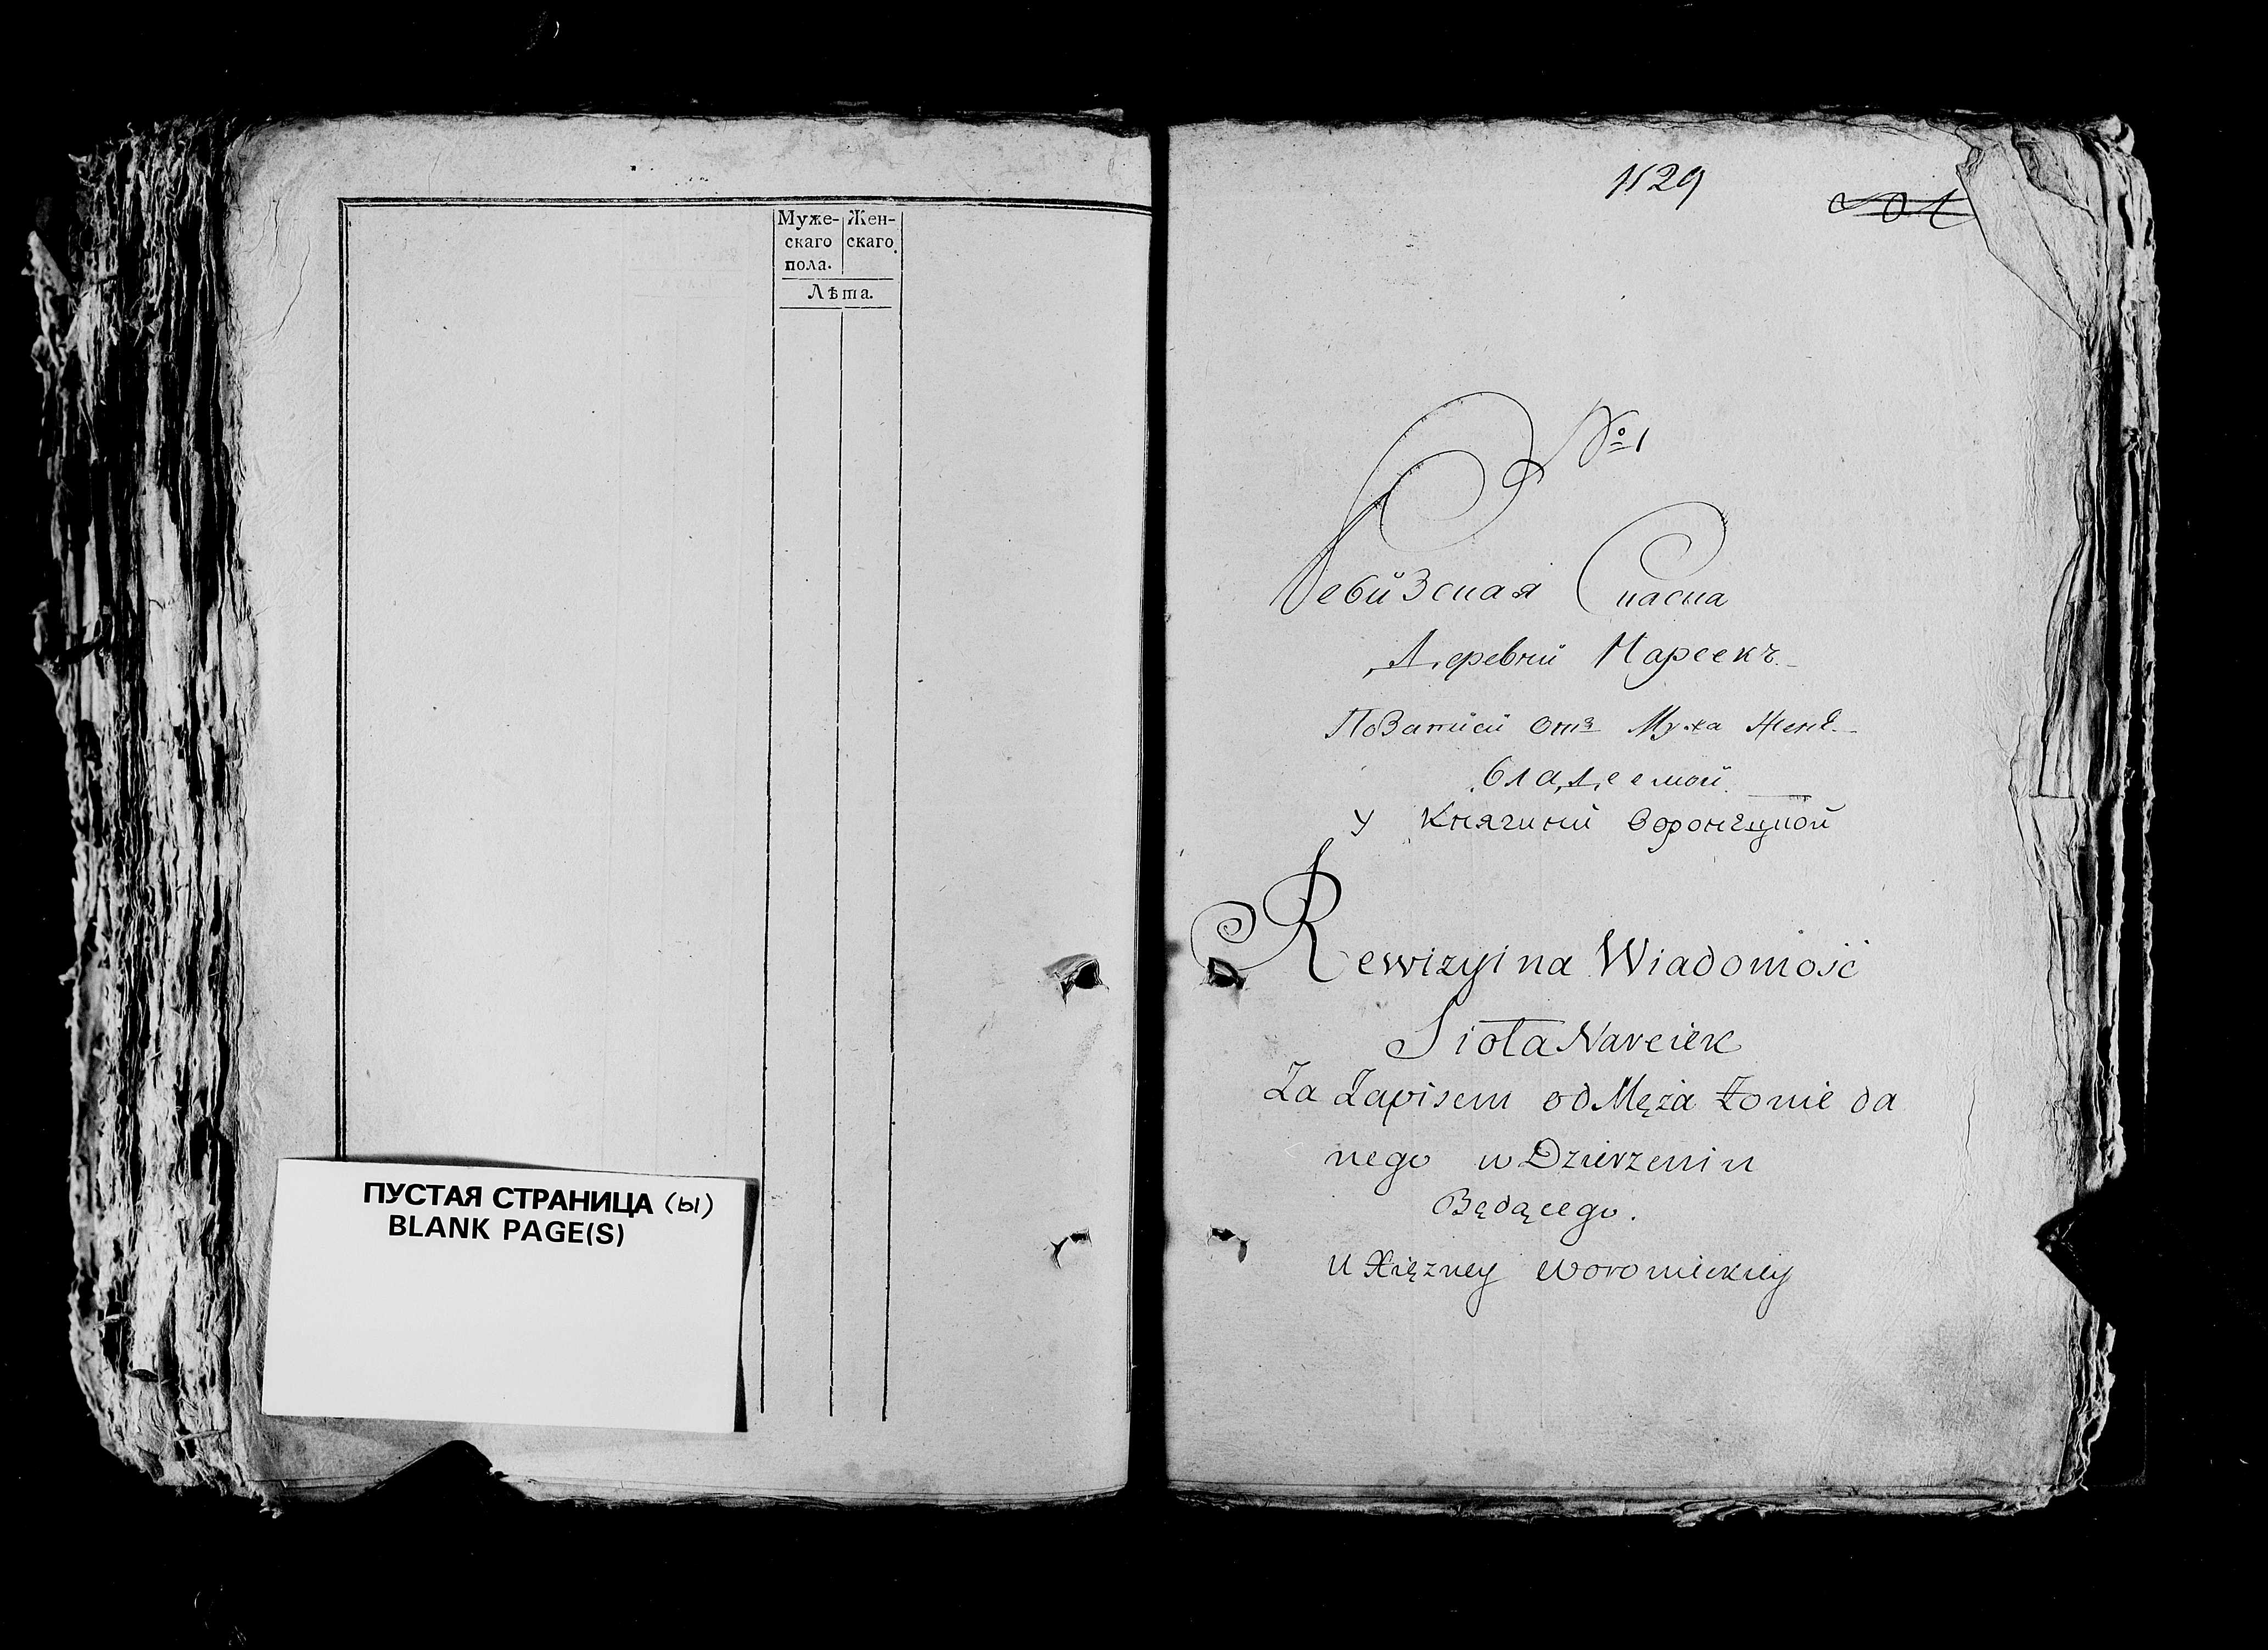 Муже- Жен-
скаго скаго.
пола.
Лѣта.
ПУСТАЯ СТРАНИЦА (ы)
BLANK PAGE(S)
1129
№ 1
Ревизская Сказка
Деревни Нарсекъ
По Записи отъ Мужа Жене
владеемой
У Княгини Воронецкой
Rewizyina Wiadomość
Sioła Narciek
Za Zapisem od Męża Żonie da
nego w Dzierzeniu
Będącego.
u Xiężney Woronieckiey